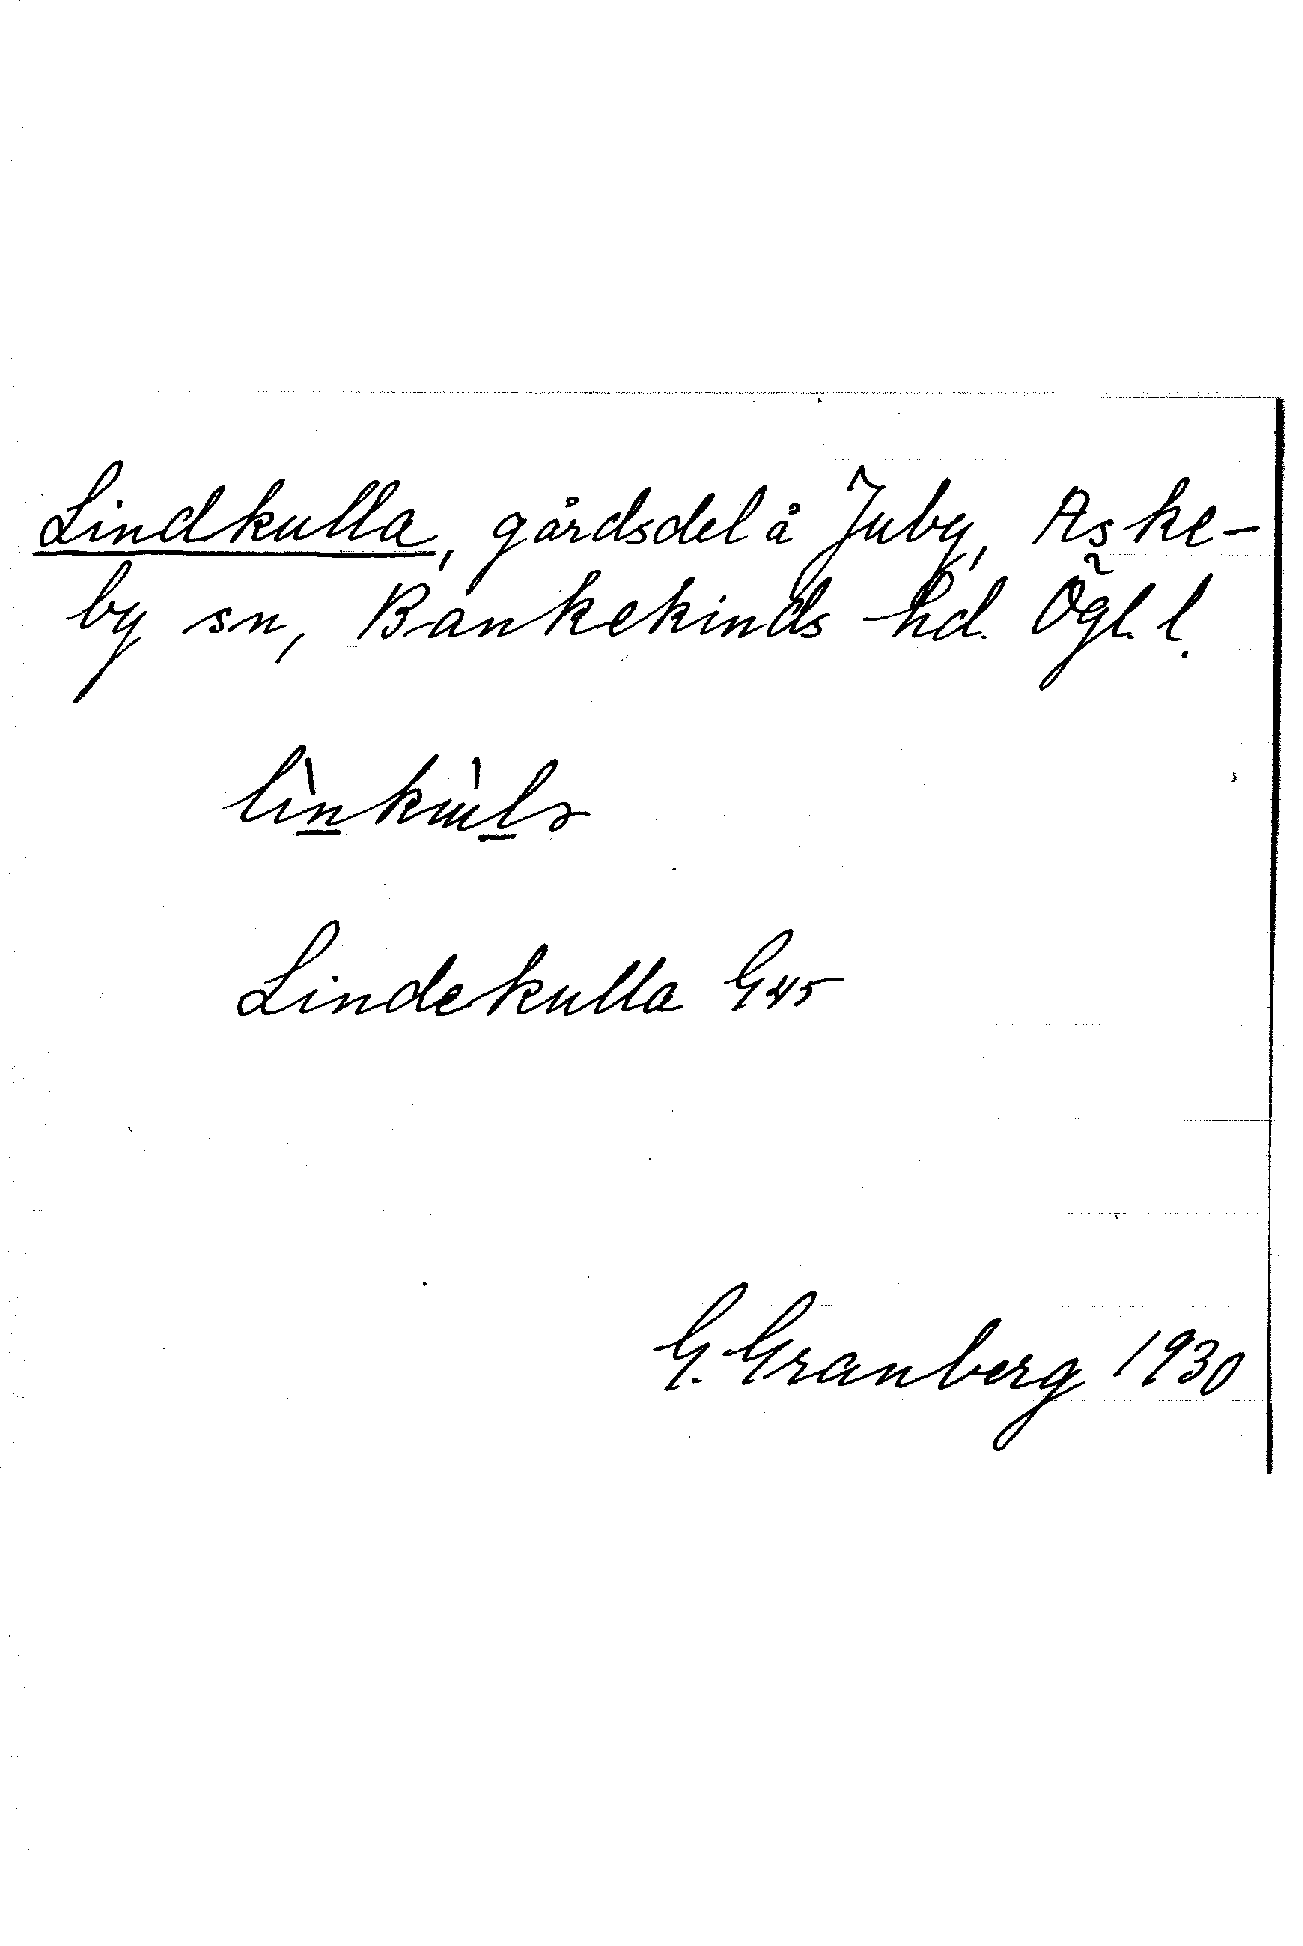 Lindkulla, gårdsdel å Juby, Aske-
by sn, Bankekinds hd. Ögl. l.
Lindekulla G45
G. Granberg 1930